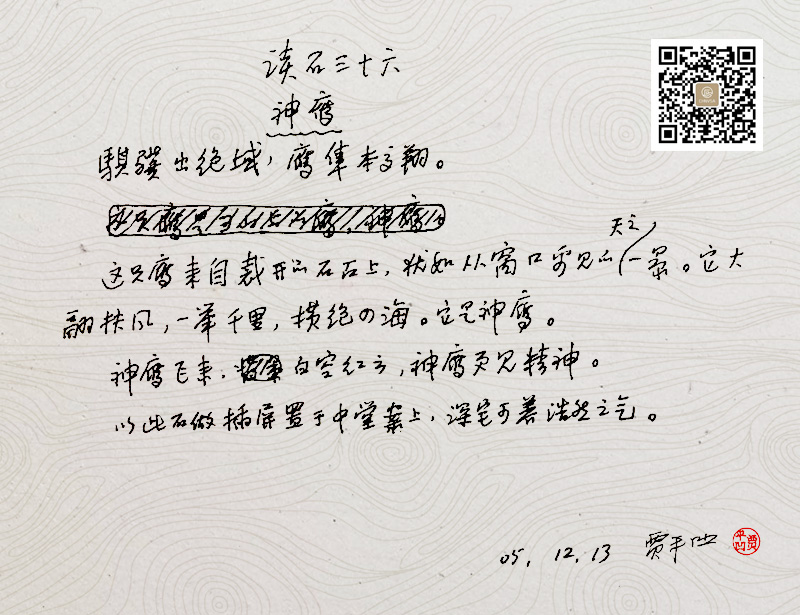 读石三十六
神鹰
骐骥出绝域，鹰隼本高翔。
天之
这只鹰来自裁开的石头上，状如从窗口窥见的一景。它大
翮扶风，一举千里，横绝四海。它是神鹰。
神鹰飞来，白空红云，神鹰更见精神。
以此石做插屏置于中堂案上，深宅可养浩然之气。
05．12．13 贾平凹
贾平凹